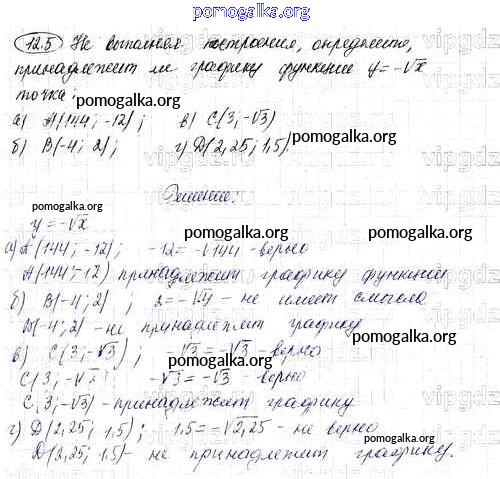 pomogalka.org
12.5 Не выполняя построения, определите,
принадлежит ли графику функции y = -√x
точка:
pomogalka.org
pomogalka.org
а) A(144; -12); в) C(3; -√3)
б) B(-4; 2); г) D(2,25; 1,5).
Решение:
pomogalka.org
y = -√x
pomogalka.org
а) A(144; -12); -12 = -√144 - верно
A(144; -12) принадлежит графику функции
б) B(-4; 2); 2 = -√-4 - не имеет смысла
B(-4; 2) - не принадлежит графику
pomogalka.org
в) C(3; -√3); -√3 = -√3 - верно
C(3; -√3) -√3 = -√3 - верно
C(3; -√3) - принадлежит графику
pomogalka.org
г) D(2,25; 1,5); 1,5 = -√2,25 - не верно
pomogalka.org
D(2,25; 1,5) - не принадлежит графику.